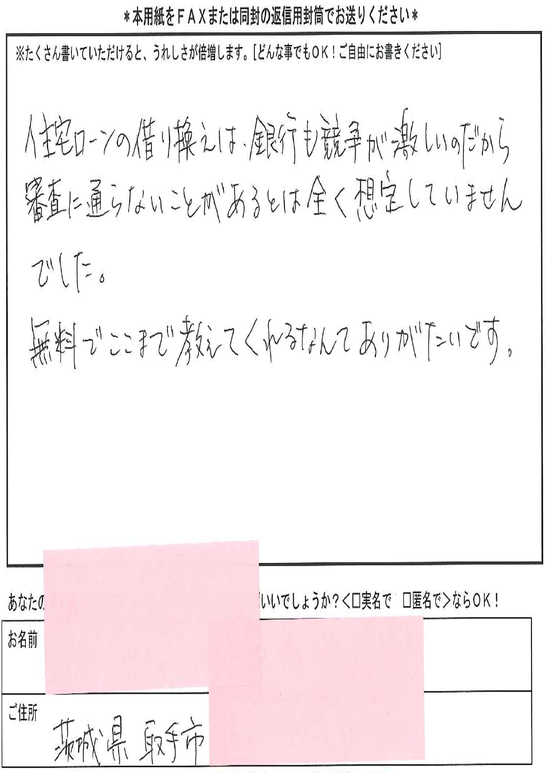 ＊本用紙をＦＡＸまたは同封の返信用封筒でお送りください＊
※たくさん書いていただけると、うれしさが倍増します。[どんな事でもＯＫ！ご自由にお書きください]
住宅ローンの借り換えは、銀行も競争が激しいのだから
審査に通らないことがあるとは全く想定していません
でした。
無料でここまで教えてくれるなんてありがたいです。
あなたの いいでしょうか？＜□実名で □匿名で＞ならＯＫ！
お名前
ご住所 茨城県 取手市